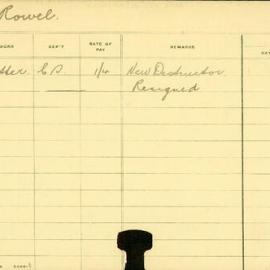 Rowel.
WORK DEP'T RATE OF PAY REMARKS
tter. C.D. 1/4 New Destructor.
Resigned